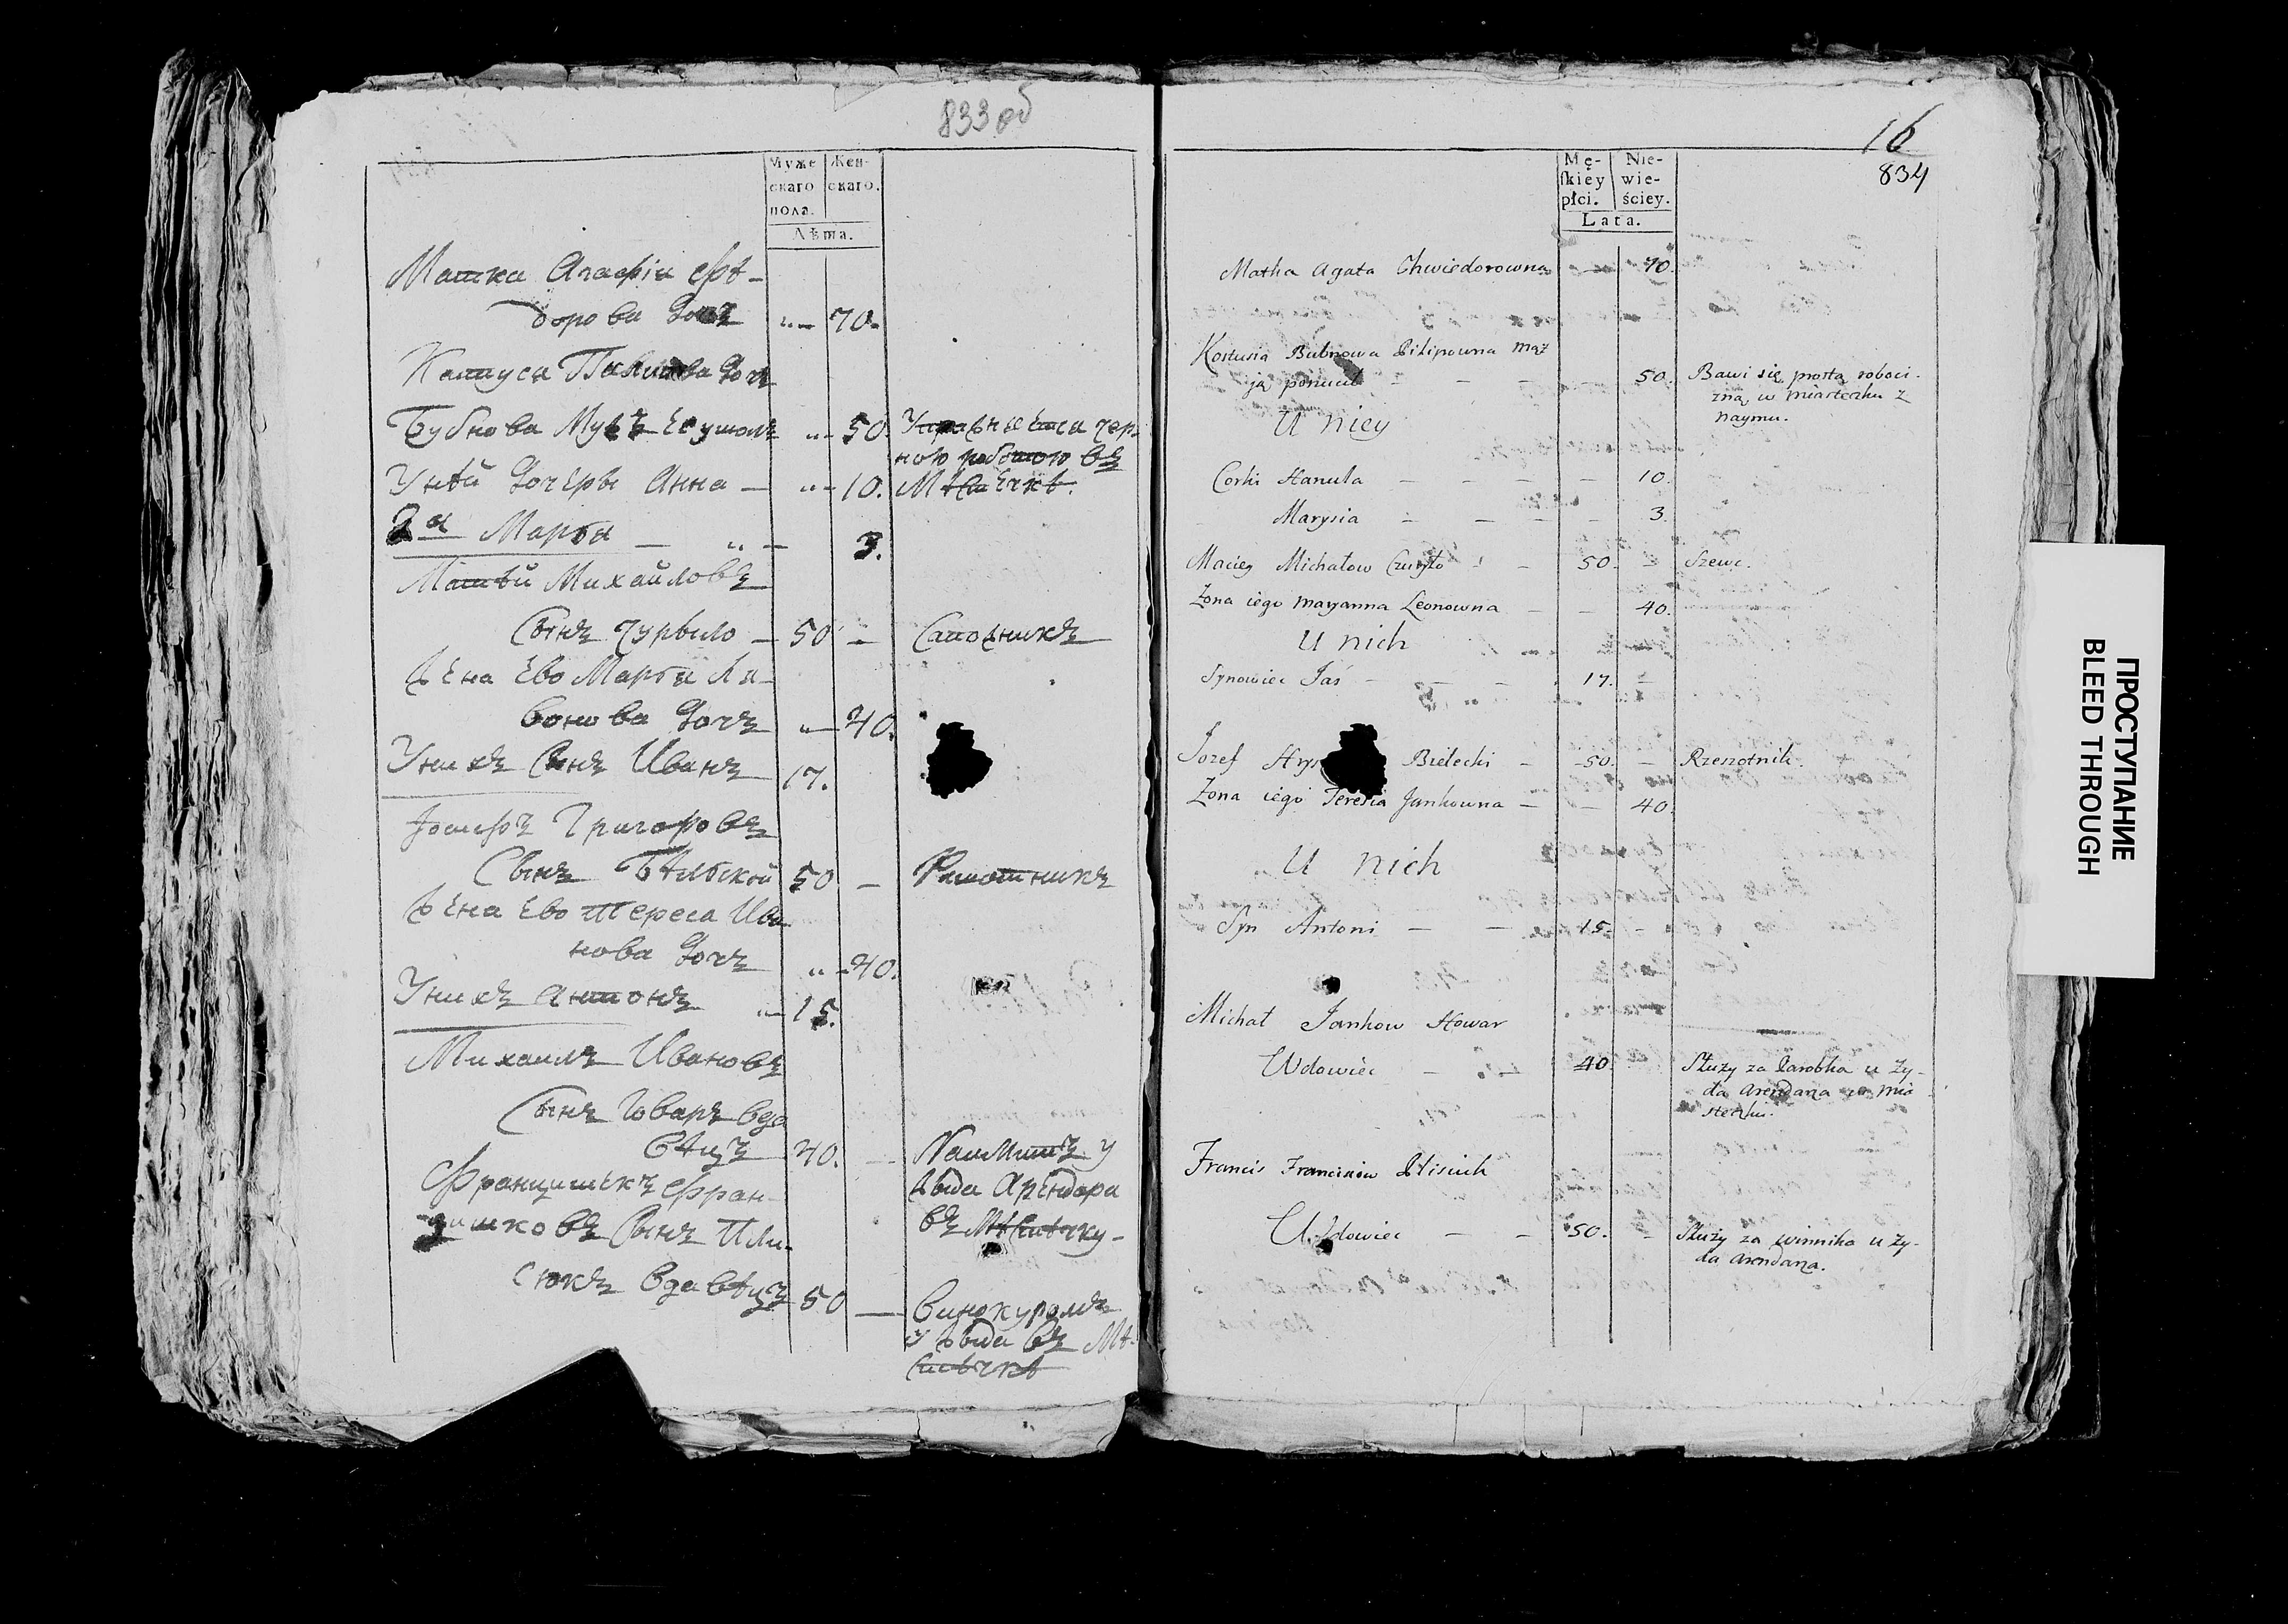 833 об
Муже
скаго
пола.
Жен-
скаго.
Лѣта.
Матка Агафія Ѳѣ-
дорова дочъ „— 70.
Бубнова Мужъ „— 50.
ною работою въ
Унѣй дочеры Анна — „— 10. Мѣстечкѣ.
2я Марья — „— 3.
Матвѣй Михайловъ
сынъ Чурыло — 50 — Сапожникъ
Жена Ево Марья Ли-
вонова дочъ „— 40.
Унихъ сынъ Иванъ 17.
Іосифъ Григоровъ
Сынъ Бѣльской 50 — Решотникъ
Жена Ево Тереса Ива
нова дочъ „— 40.
Унихъ Антонъ „— 15.
Михаилъ Ивановъ
сынъ Говаръ вдо
вѣцъ 40. — у
Францишекъ Фран-
жида Арендара
цишковъ сынъ Пли-
въ Мѣстечку
сюкъ вдавѣцъ 50 — Винокуромъ
у жида въ Мѣ-
стечкѣ
16
834
Mę-
skiey
płci.
Nie-
wie-
ściey.
Lata.
Matka Agata Chwiedorowna — 70.
Kostusia Bubnowa Pilipowna mąż
ją porucił — 50. Bawi się prostą roboci-
zną w miasteczku z
naymu.
U niey
Corki Hanula — 10.
Marysia — 3.
Maciey Michałow Czuryło — 50. — Szewc.
Żona iego Maryanna Leonowna — 40.
U nich
Synowiec Jaś — 17. —
Jozef Hrys Bielecki — 50. — Rzeszotnik.
Żona iego Teresia Jankowna — 40.
U nich
Syn Antoni — 15. —
Michał Jankow Howar
Wdowiec — 40. Służy za Parobka u Ży-
da Arendarza w mia
steczku.
Francis Franciszkow Plisiuk
Wdowiec — 50. — Służy za winnika u Ży-
da Arendarza.
ПРОСТУПАНИЕ
BLEED THROUGH